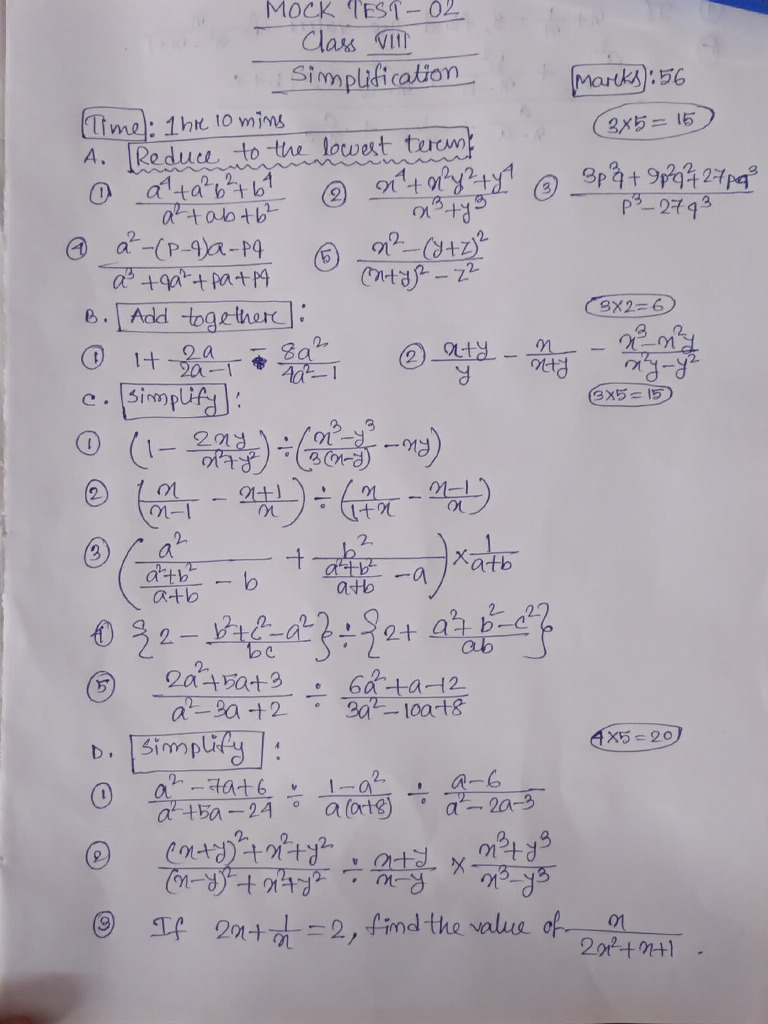 MOCK TEST - 02
Class VIII
Simplification
Marks : 56
Time : 1hr 10 mins
3×5 = 15
A. Reduce to the lowest term :
① (a⁴+a²b²+b⁴)/(a²+ab+b²) ② (x⁴+x²y²+y⁴)/(x³+y³) ③ (3p³q + 9p²q²+27pq³)/(p³-27q³)
④ (a²-(p-q)a-pq)/(a³+qa²+pa+pq) ⑤ (x²-(y+z)²)/((x+y)²-z²)
3×2=6
B. Add together :
① 1+ 2a/(2a-1) - 8a²/(4a²-1) ② (x+y)/y - x/(x+y) - (x³-x²y)/(x²y-y²)
C. Simplify : 3×5=15
① (1- 2xy/(x²+y²)) ÷ ((x³-y³)/(3(x-y)) -xy)
② (x/(x-1) - (x+1)/x) ÷ (x/(1+x) - (x-1)/x)
③ (a²/((a²+b²)/(a+b) - b) + b²/((a²+b²)/(a+b) - a)) × 1/(a+b)
④ {2 - (b²+c²-a²)/bc} ÷ {2+ (a²+b²-c²)/ab}
⑤ (2a²+5a+3)/(a²-3a+2) ÷ (6a²+a-12)/(3a²-10a+8)
D. Simplify : 4×5=20
① (a²-7a+6)/(a²+5a-24) ÷ (1-a²)/(a(a+8)) ÷ (a-6)/(a²-2a-3)
② ((x+y)²+x²+y²)/((x-y)²+x²+y²) ÷ (x+y)/(x-y) × (x³+y³)/(x³-y³)
③ If 2x+1/x = 2, find the value of x/(2x²+x+1) .